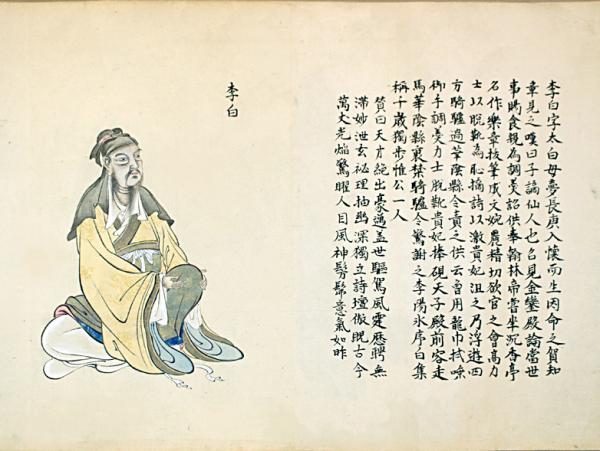 李白字太白母夢長庚入懷而生因命之賀知
章見之嘆曰子謫仙人也召見金鑾殿論當世
事賜食親為調羮詔供奉翰林帝嘗坐沉香亭
名作樂章援筆成文婉麗精切欲官之會高力
士以脫靴為恥摘詩以激貴妃沮之乃浮遊四
方騎驢過華陰縣令責之供云曾用龍巾拭唾
御手調羮力士脫靴貴妃捧硯天子殿前容走
馬華陰縣裏禁騎驢令驚謝之李陽冰序白集
稱千歲獨步惟公一人
贊曰天才純出豪邁蓋世驅駕風霆歷騁無
滯妙泄玄祕理抽幽深獨立詩壇傲睨古今
萬丈光焰驚曜人目風神髣髴意氣如昨
李白